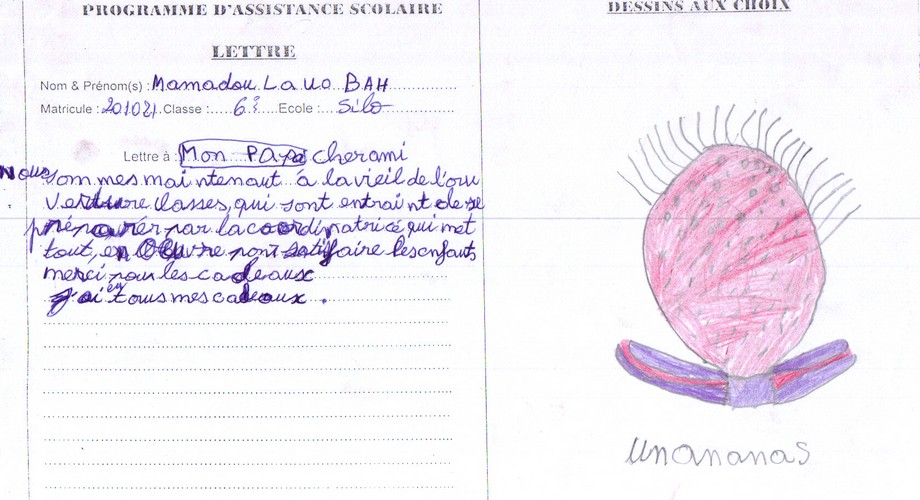 PROGRAMME D'ASSISTANCE SCOLAIRE
LETTRE
Nom & Prénom(s) : Mamadou La uo BAH
Matricule : 201021 Classe : 6è Ecole : Silo
Lettre à : Mon PAPa cherami
Nous som mes mai ntenant á la vieil de l'ou
verture classes, qui sont entrai nt de se
préparér par la coordinatrice qui met
tout, en Oeuvre pour satisfaire les enfants
merci pour les cadeaux
j'ai eu tous mes cadeaux .
DESSINS AUX CHOIX
Un ananas